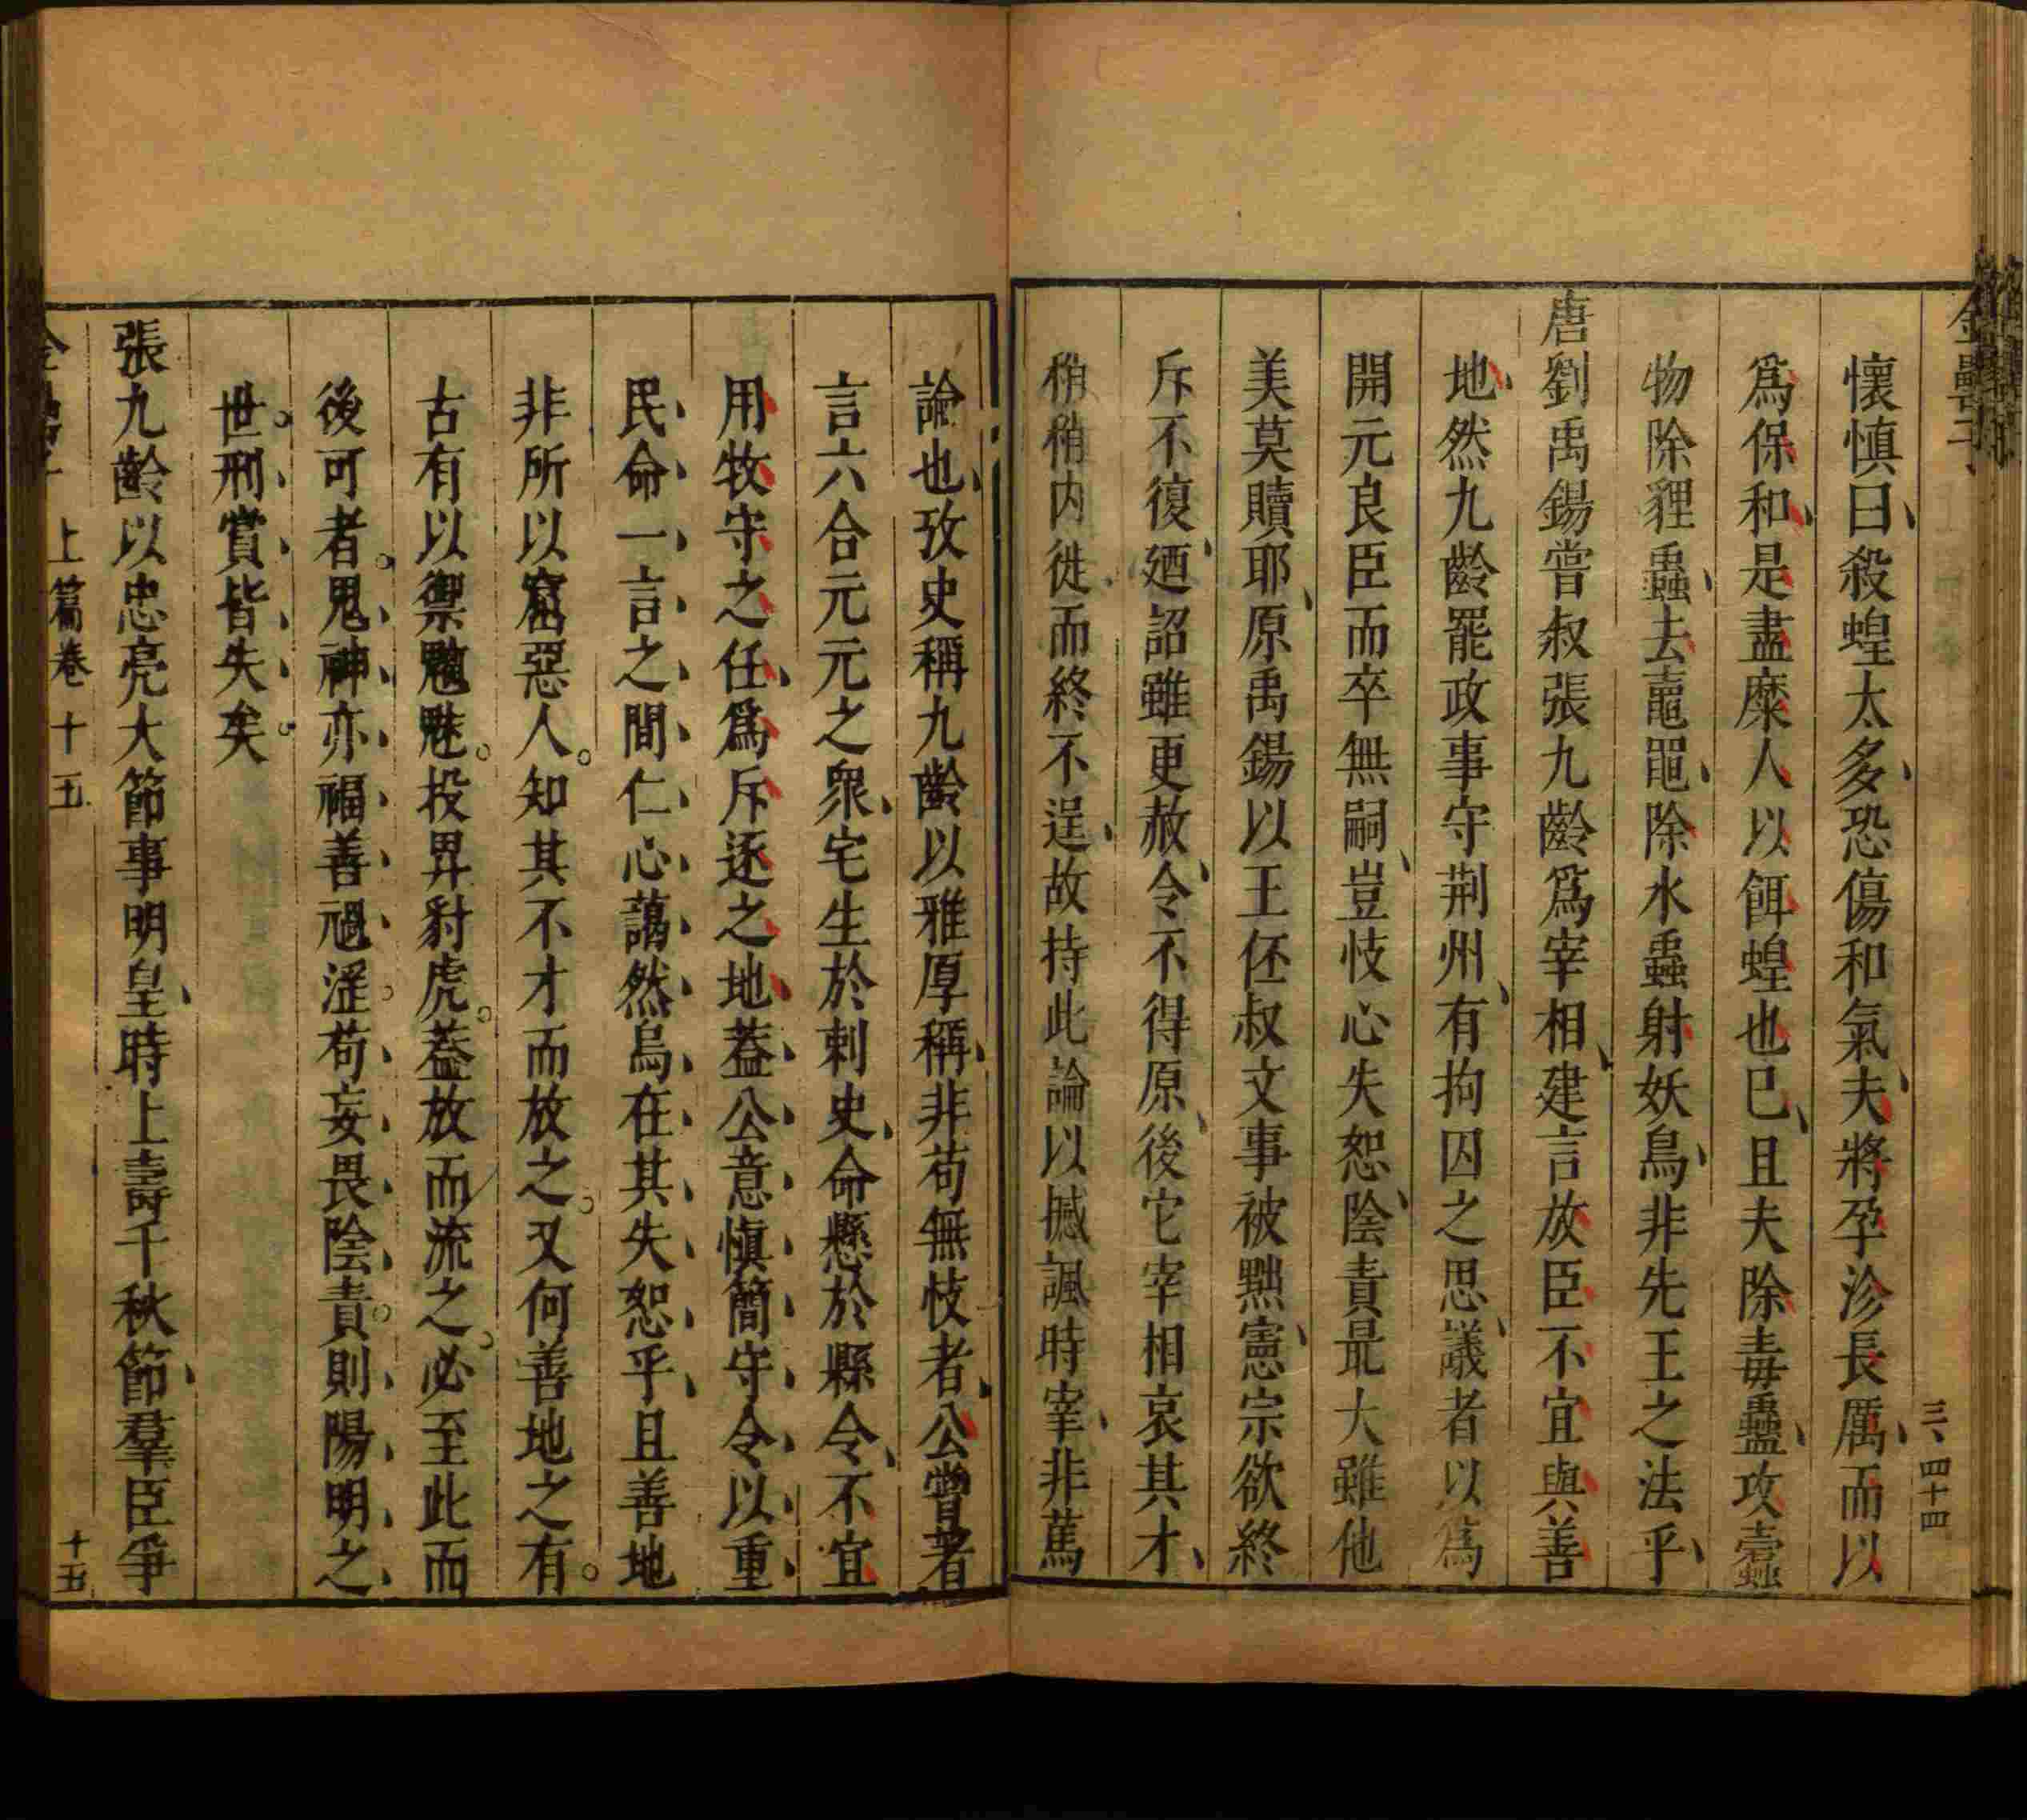 金罍子
三、四十四
懷慎曰殺蝗太多恐傷和氣夫將孕沴長厲而以
爲保和是盡糜人以餌蝗也已且夫除毒蠱攻蠹
物除貍蟲去鼃黽除水蟲射妖鳥非先王之法乎
唐劉禹錫嘗叔張九齡爲宰相建言放臣不宜與善
地然九齡罷政事守荆州有拘囚之思議者以爲
開元良臣而卒無嗣豈忮心失恕陰責最大雖他
美莫贖耶原禹錫以王伾叔文事被黜憲宗欲終
斥不復廼詔雖更赦令不得原後它宰相哀其才
稍稍内徙而終不逞故持此論以撼諷時宰非篤
論也攷史稱九齡以雅厚稱非苟無忮者公嘗著
言六合元元之衆宅生於剌史命懸於縣令不宜
用牧守之任爲斥逐之地葢公意愼簡守令以重
民命一言之間仁心藹然烏在其失恕乎且善地
非所以窩惡人知其不才而放之又何善地之有
古有以禦魑魅投畀豺虎葢放而流之必至此而
後可者鬼神亦福善禍淫苟妄畏陰責則陽明之
世刑賞皆失矣
張九齡以忠亮大節事明皇時上壽千秋節羣臣爭
上篇卷十五
十五